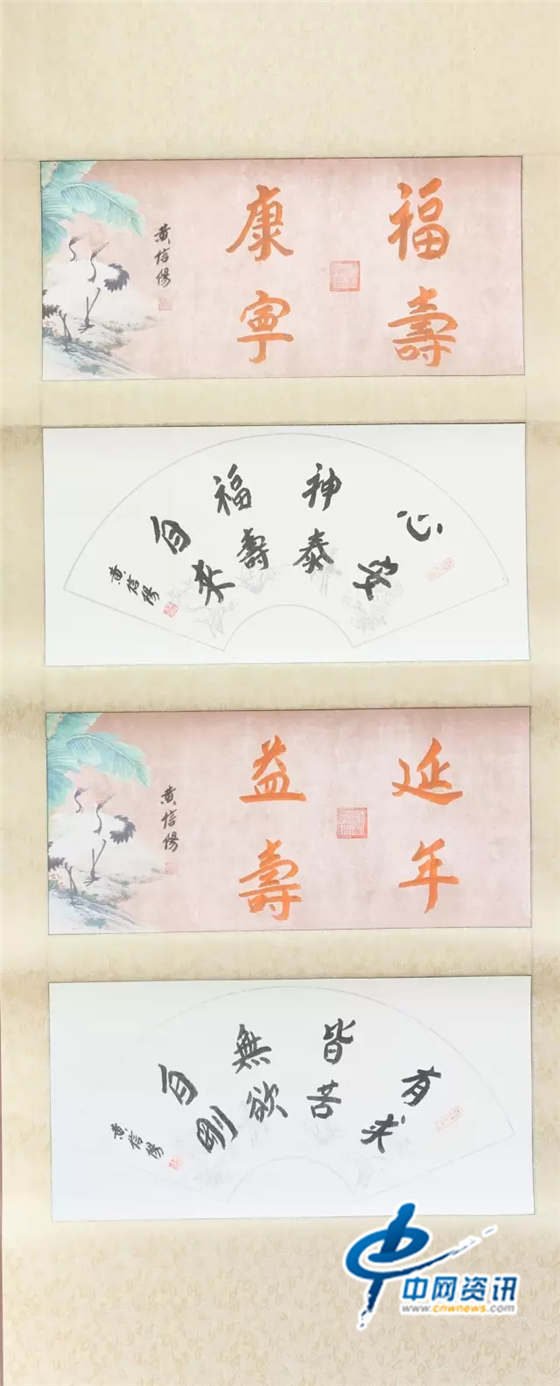 福壽
康寧
黄信陽
心安
神泰
福壽
自来
黄信陽
延年
益壽
黄信陽
有求
皆苦
無欲
自剛
黄信陽
中网资讯
www.cnwnews.com